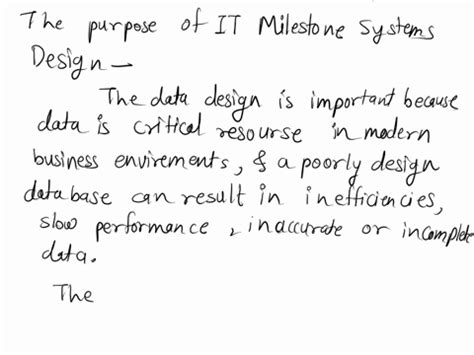 The purpose of IT Milestone Systems
Design —
The data design is important because
data is critical resourse in modern
business envirements, & a poorly design
database can result in inefficiencies,
slow performance, inaccurate or incomplete
data.
The